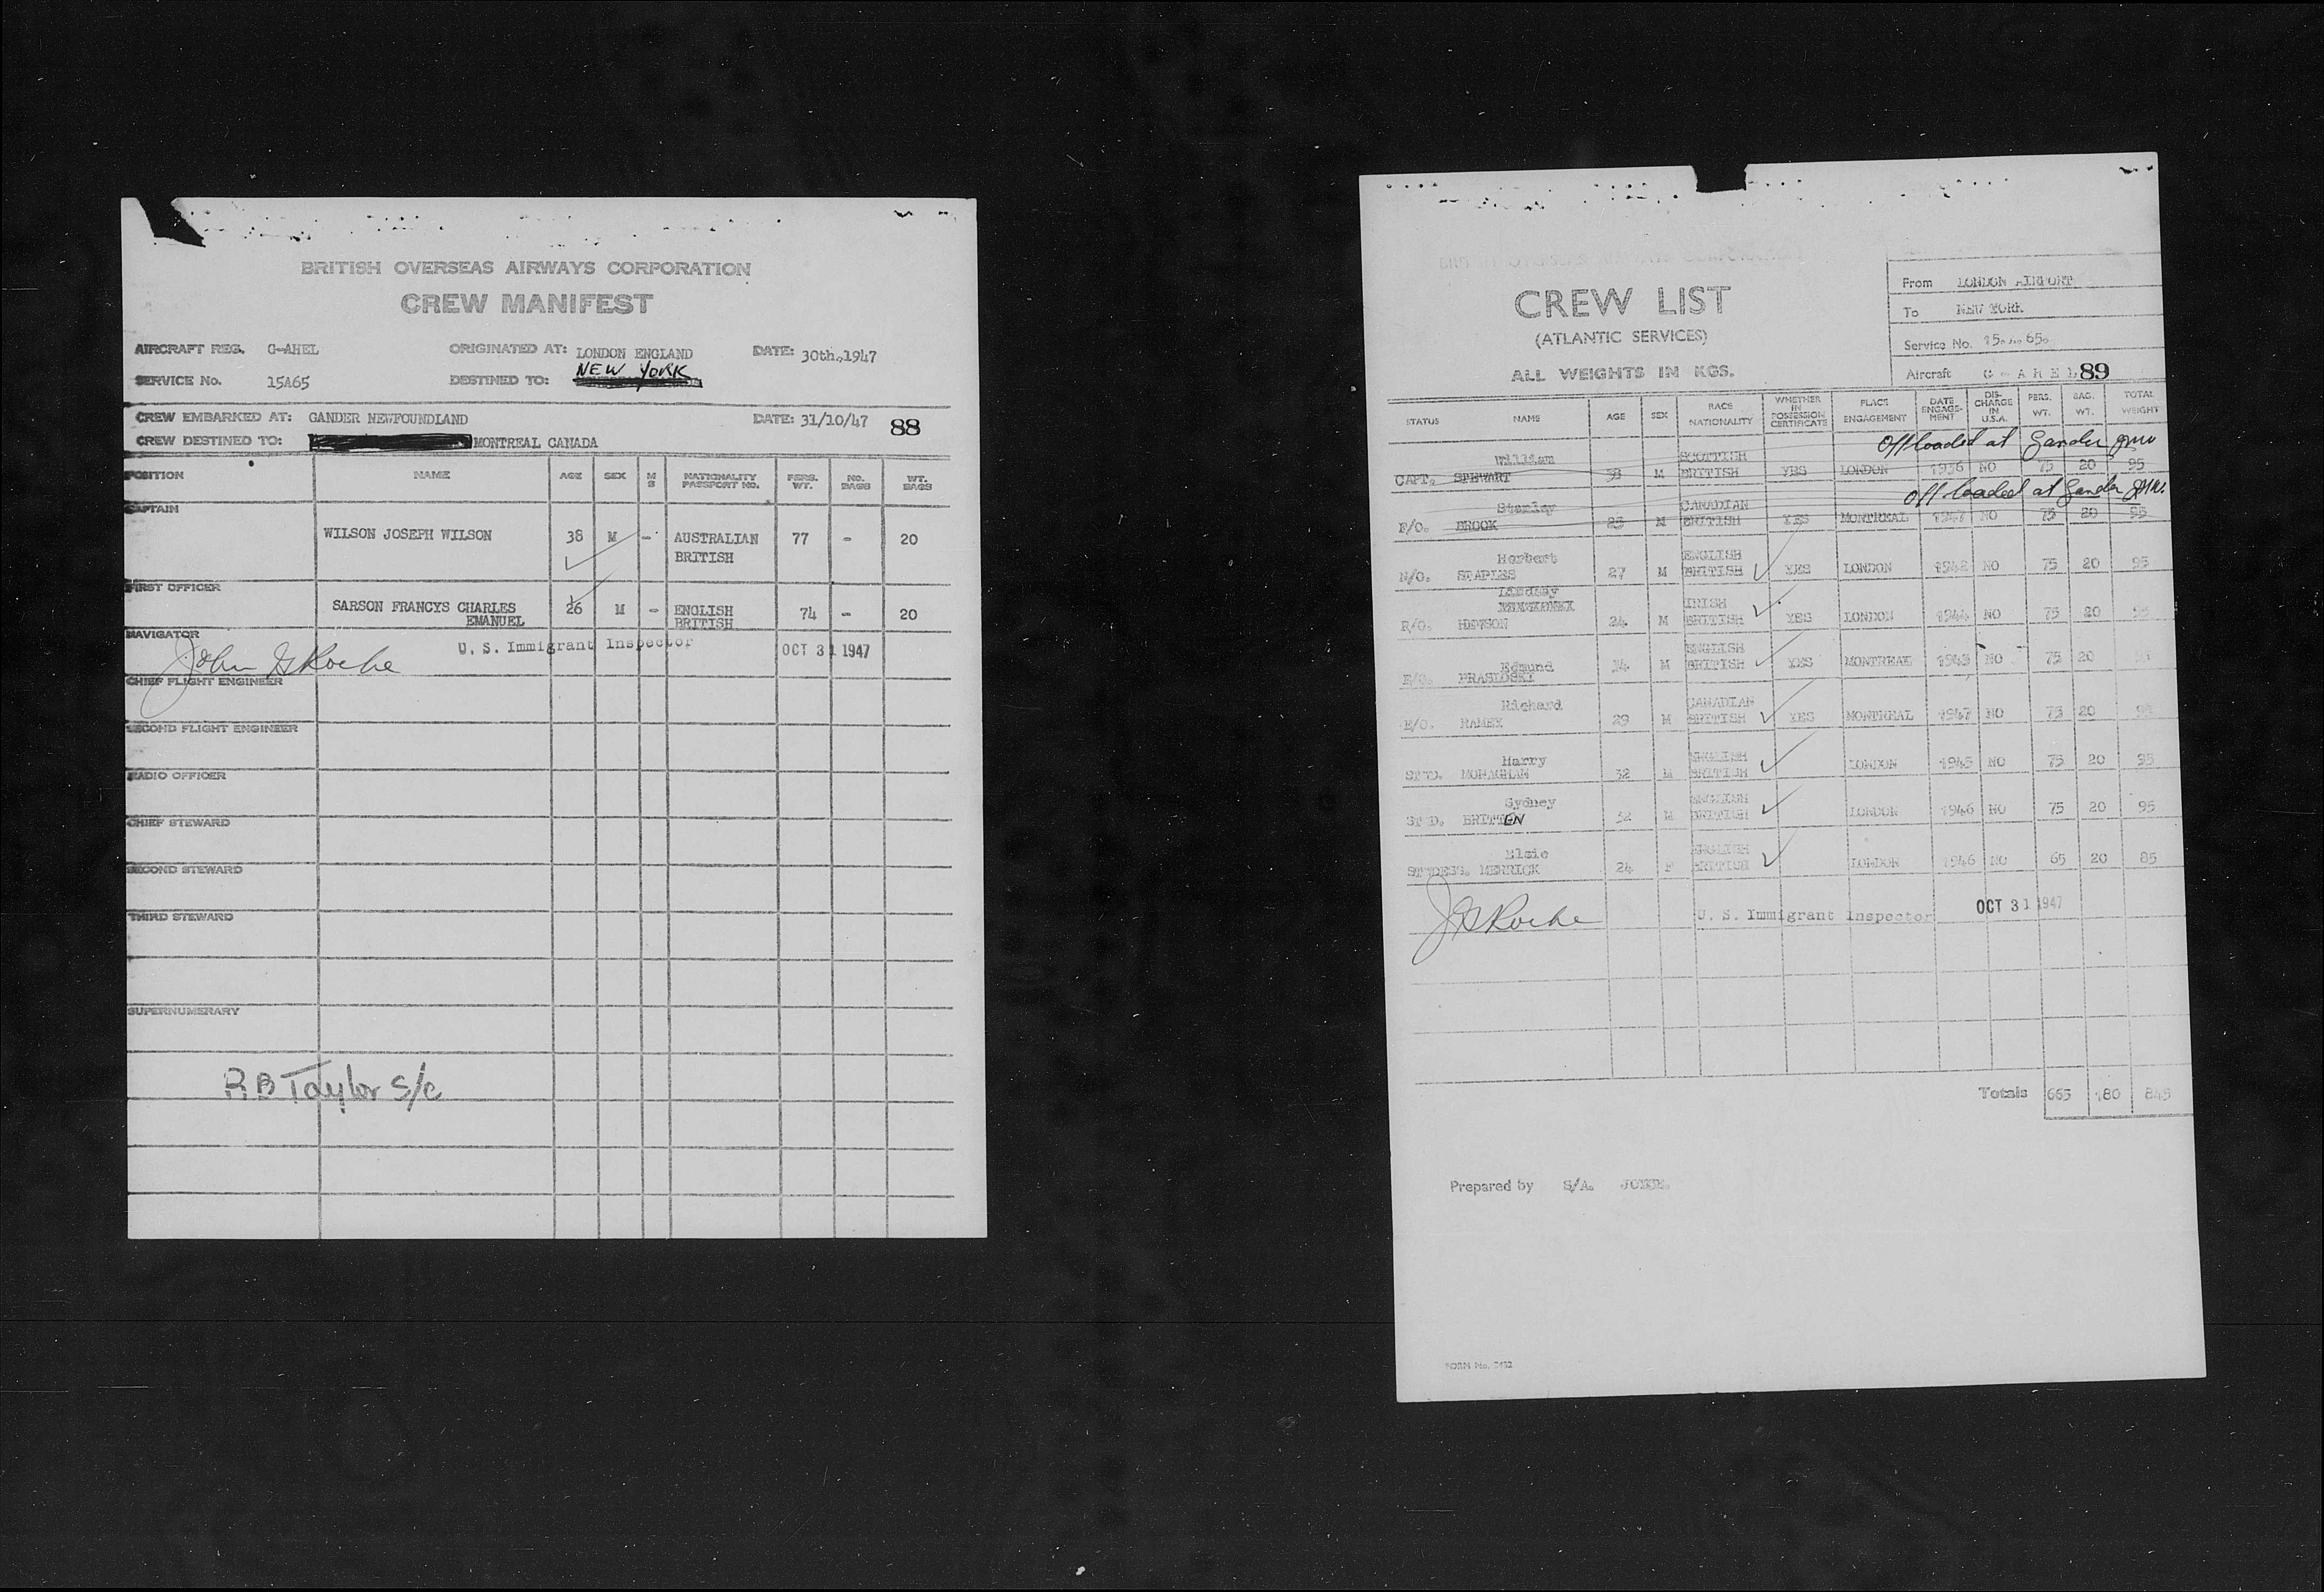 BRITISH OVERSEAS AIRWAYS CORPORATION
CREW MANIFEST
AIRCRAFT REG. G-AHEL ORIGINATED AT: LONDON ENGLAND DATE: 30th.,1947
SERVICE No. 15A65 DESTINED TO: NEW YORK
CREW EMBARKED AT: GANDER NEWFOUNDLAND DATE: 31/10/47 88
CREW DESTINED TO: MONTREAL CANADA
POSITION NAME AGE SEX M S NATIONALITY PASSPORT NO. PERS. WT. NO. BAGS WT. BAGS
CAPTAIN
WILSON JOSEPH WILSON 38 M - AUSTRALIAN 77 - 20
BRITISH
FIRST OFFICER
SARSON FRANCYS CHARLES 26 M - ENGLISH 74 - 20
EMANUEL BRITISH
NAVIGATOR
John G Roche U. S. Immigrant Inspector OCT 31 1947
CHIEF FLIGHT ENGINEER
SECOND FLIGHT ENGINEER
RADIO OFFICER
CHIEF STEWARD
SECOND STEWARD
THIRD STEWARD
SUPERNUMERARY
R B Taylor S/C
CREW LIST
(ATLANTIC SERVICES)
ALL WEIGHTS IN KGS.
From LONDON AIRPORT
To NEW YORK
Service No.
Aircraft 89
STATUS NAME AGE SEX RACE NATIONALITY WHETHER IN POSSESSION CERTIFICATE PLACE ENGAGEMENT DATE ENGAGE-MENT DIS-CHARGE IN U.S.A. PERS. WT. BAG. WT. TOTAL WEIGHT
Offloaded at Gander
William SCOTTISH
CAPT. STEWART M BRITISH YES LONDON 1936 NO 75 20 95
Off loaded at Gander
Stanley CANADIAN
F/O. BROOK 25 M BRITISH YES MONTREAL 1947 NO 75 20 95
Herbert ENGLISH
N/O. STAPLES 27 M BRITISH YES LONDON 1942 NO 75 20 95
Lindsay IRISH
R/O. HEWSON 24 M BRITISH YES LONDON 1944 NO 75 20 95
ENGLISH
Edmund 34 M BRITISH YES MONTREAL 1943 NO 75 20 95
E/O.
Richard CANADIAN
E/O. RAMEX 29 M BRITISH YES MONTREAL 1947 NO 75 20 95
Harry ENGLISH
ST'D. MONAGHAN 32 M BRITISH LONDON 1945 NO 75 20 95
Sydney ENGLISH
ST'D. BRITTEN 32 M BRITISH LONDON 1946 NO 75 20 95
Elsie ENGLISH
ST'DESS. MERRICK 24 F BRITISH LONDON 1946 NO 65 20 85
J G Roche U. S. Immigrant Inspector OCT 31 1947
Totals 665 180 845
Prepared by S/A.
FORM No.